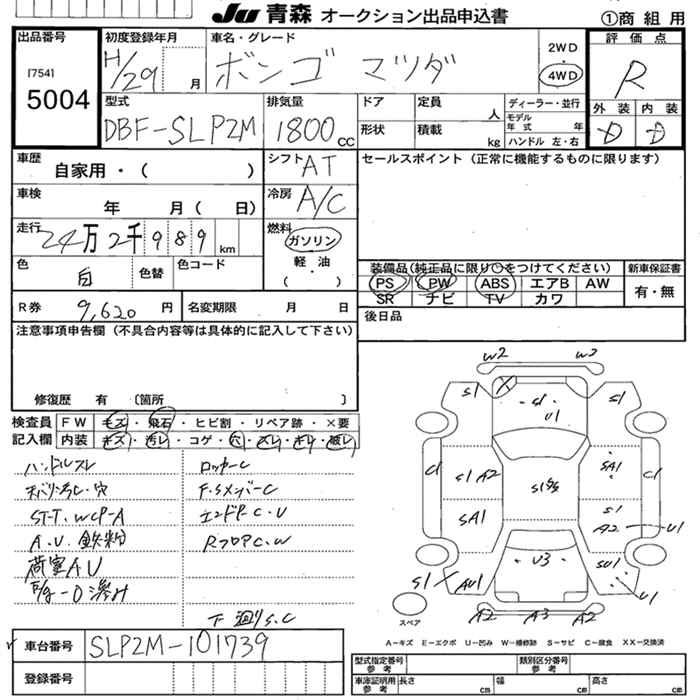 JU 青森 オークション出品申込書
①商組用
出品番号
[754]
5004
初度登録年月
H/29 月
車名・グレード
ボンゴ マツダ
2WD
4WD
評価点
R
外装 内装
D D
型式
DBF-SLP2M
排気量
1800 cc
ドア
定員 人
形状
積載 kg
ディーラー・並行
モデル年式 年
ハンドル 左・右
車歴
自家用・( )
シフト AT
セールスポイント(正常に機能するものに限ります)
車検 年 月( 日)
冷房 A/C
走行 24万2千989 km
燃料
ガソリン
軽・油
( ・ )
色 白
色替
色コード
装備品(純正品に限り○をつけてください)
PS PW ABS エアB AW
SR ナビ TV カワ
新車保証書
有・無
R券 9,620 円
名変期限 月 日
後日品
注意事項申告欄(不具合内容等は具体的に記入して下さい)
修復歴 有 〔箇所 〕
検査員記入欄
FW キズ・飛石・ヒビ割・リペア跡・×要
内装 キズ・汚レ・コゲ・穴・スレ・キリ・破レ
ハンドルスレ
ロッカーC
F・SメンバーC
ST-T.WCP-A
エンドP C.U
A.U.鉄粉
RフロアC.W
荷室AU
下廻りS.C
W2 W3
S1 X S1 U1 S1
C1 S1 A2 SA1 C1
S1
SA1 S1 A2 U1
S1 AU1 U3 SU1 U1
A2 A3 A2
スペア
A-キズ E-エクボ U-凹み W-補修跡 S-サビ C-腐食 XX-交換済
車台番号 SLP2M-101739
登録番号
型式指定番号 参考
類別区分番号 参考
車庫証明用 参考 長さ cm 幅 cm 高さ cm